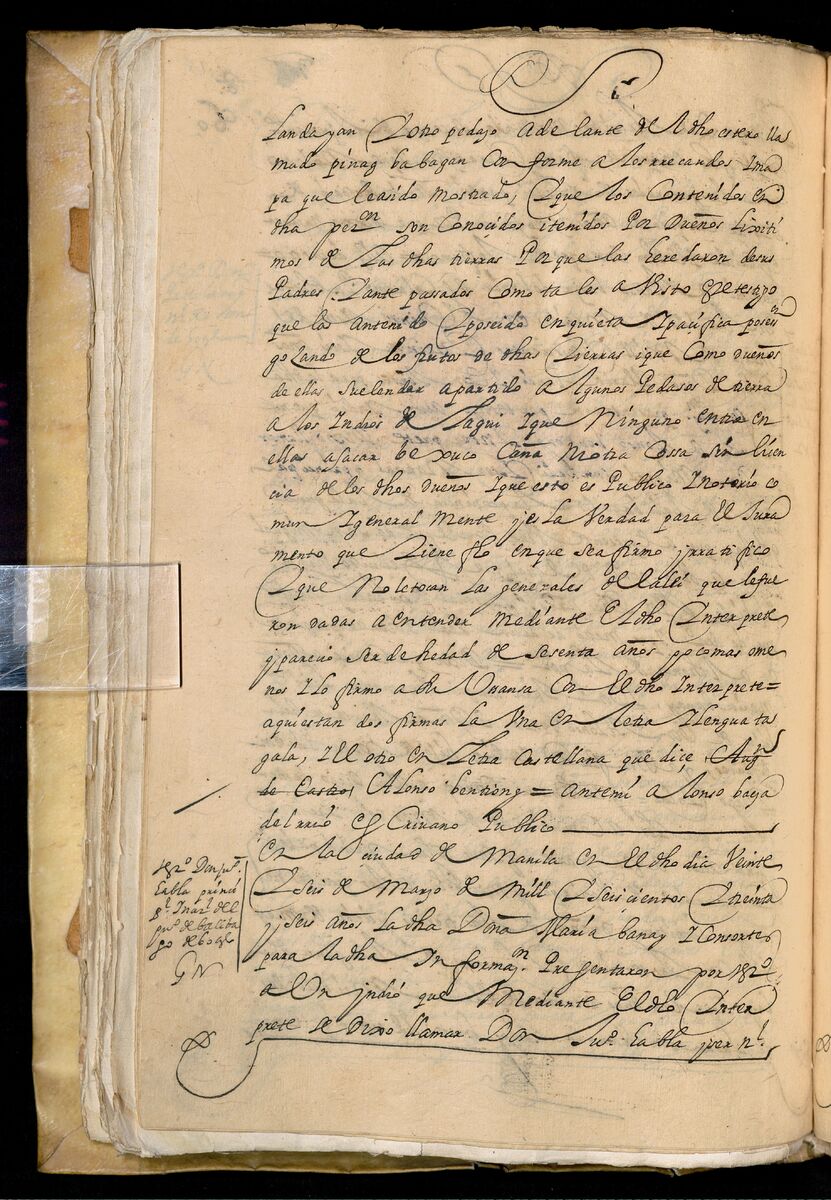 Landayan Y otro pedaço adelante del dho estero lla
mado pinag babagan conforme a los rrecaudos Y ma
pa que leasido mostrado, Y que los Contenidos en
dha petⁿ son Conoçidos i tenidos Por Dueños lixiti
mos de Las dhas tierras Porque las heredaron desus
Padres Y ante passados Como tales a Visto este testigo
que las antenido Y poseido en quieta Y paçifica poseⁿ
goZando de los frutos de dhas tierras i que Como dueños
de ellas suelen dar apartido a algunos Pedasos de tierra
a los Indios de Taqui Y que Ninguno entra en
ellas asacar bexuco Caña Ni otra Cossa sin liçen
cia de los dhos dueños Y que esto es Publico Y notorio co
mun Y general mente y es La Verdad para El Jura
mento que tiene fho en que seafirmo y rratifico
Y que No le tocan las generales de la lei que le fue
ron dadas a entender Mediante El dho Ynterprete
y pareçio ser de hedad de sesenta años poco mas o me
nos Y lo firmo a su Vsansa con El dho Interprete=
aqui estan dos firmas La Vna en letra Y lengua ta
gala, Y El otro en Letra Castellana que diçe, Augⁿ
de Castro, Alonso bentiong = Antemi Alonso baeça
del rrio esCrivano Publico
En la çiudad de Manila en El dho dia Veinte
Y seis de Março de Mill Y seisçientos Y treinta
y seis años La dha Doña Maria banay Y Consortes
para la dha Informaçⁿ Presentaron por tᵍᵒ
a Un yndio que Mediante El dho Ynter
prete se Dixo llamar Don Juº Cabla prin¹
tᵍᵒ Don juº
Cabla prinçi
p¹ Y nat¹ del
puº de balita
go de 60 aº